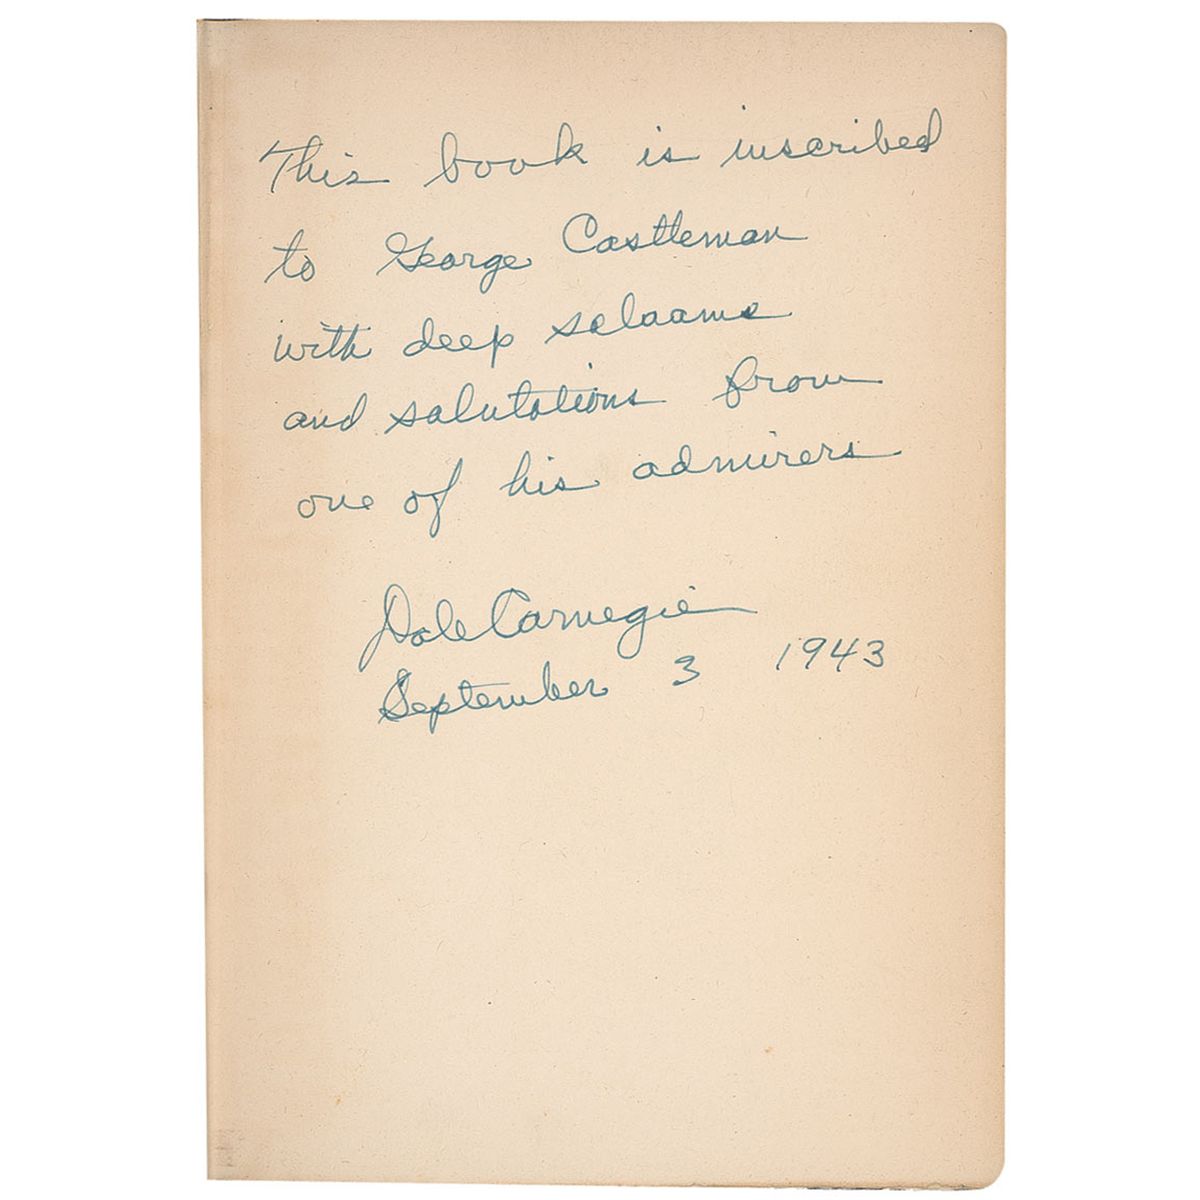 This book is inscribed
to George Castleman
with deep selaams
and salutations from
one of his admirers
Dale Carnegie
September 3 1943